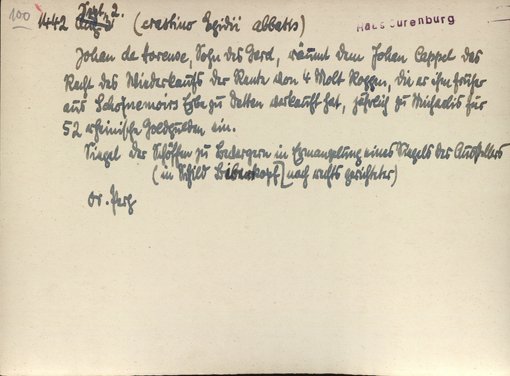 100 1442 Sept. 2. (crastino Egidii abbatis) Haus Surenburg
Johan de Forense, Sohn des Gerd, räumt dem Johan Cappel das
Recht des Wiederkaufs der Rente von 4 Molt Roggen, die er ihm früher
aus Erbe zu Detten verkauft hat, jährlich zu Michaelis für
52 rheinische Goldgulden ein.
Siegel der Schöffen zu Bevergern in Ermangelung eines Siegels des Ausstellers
(in Schild Eberkopf nach rechts gerichtet)
Or. Perg